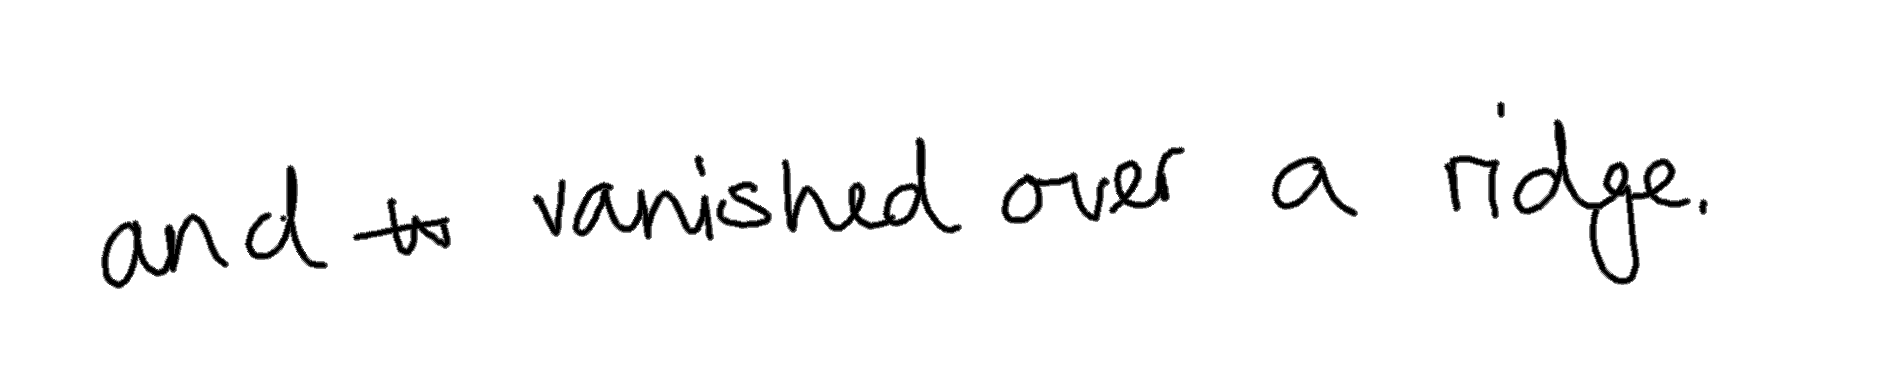 and vanished over a ridge.